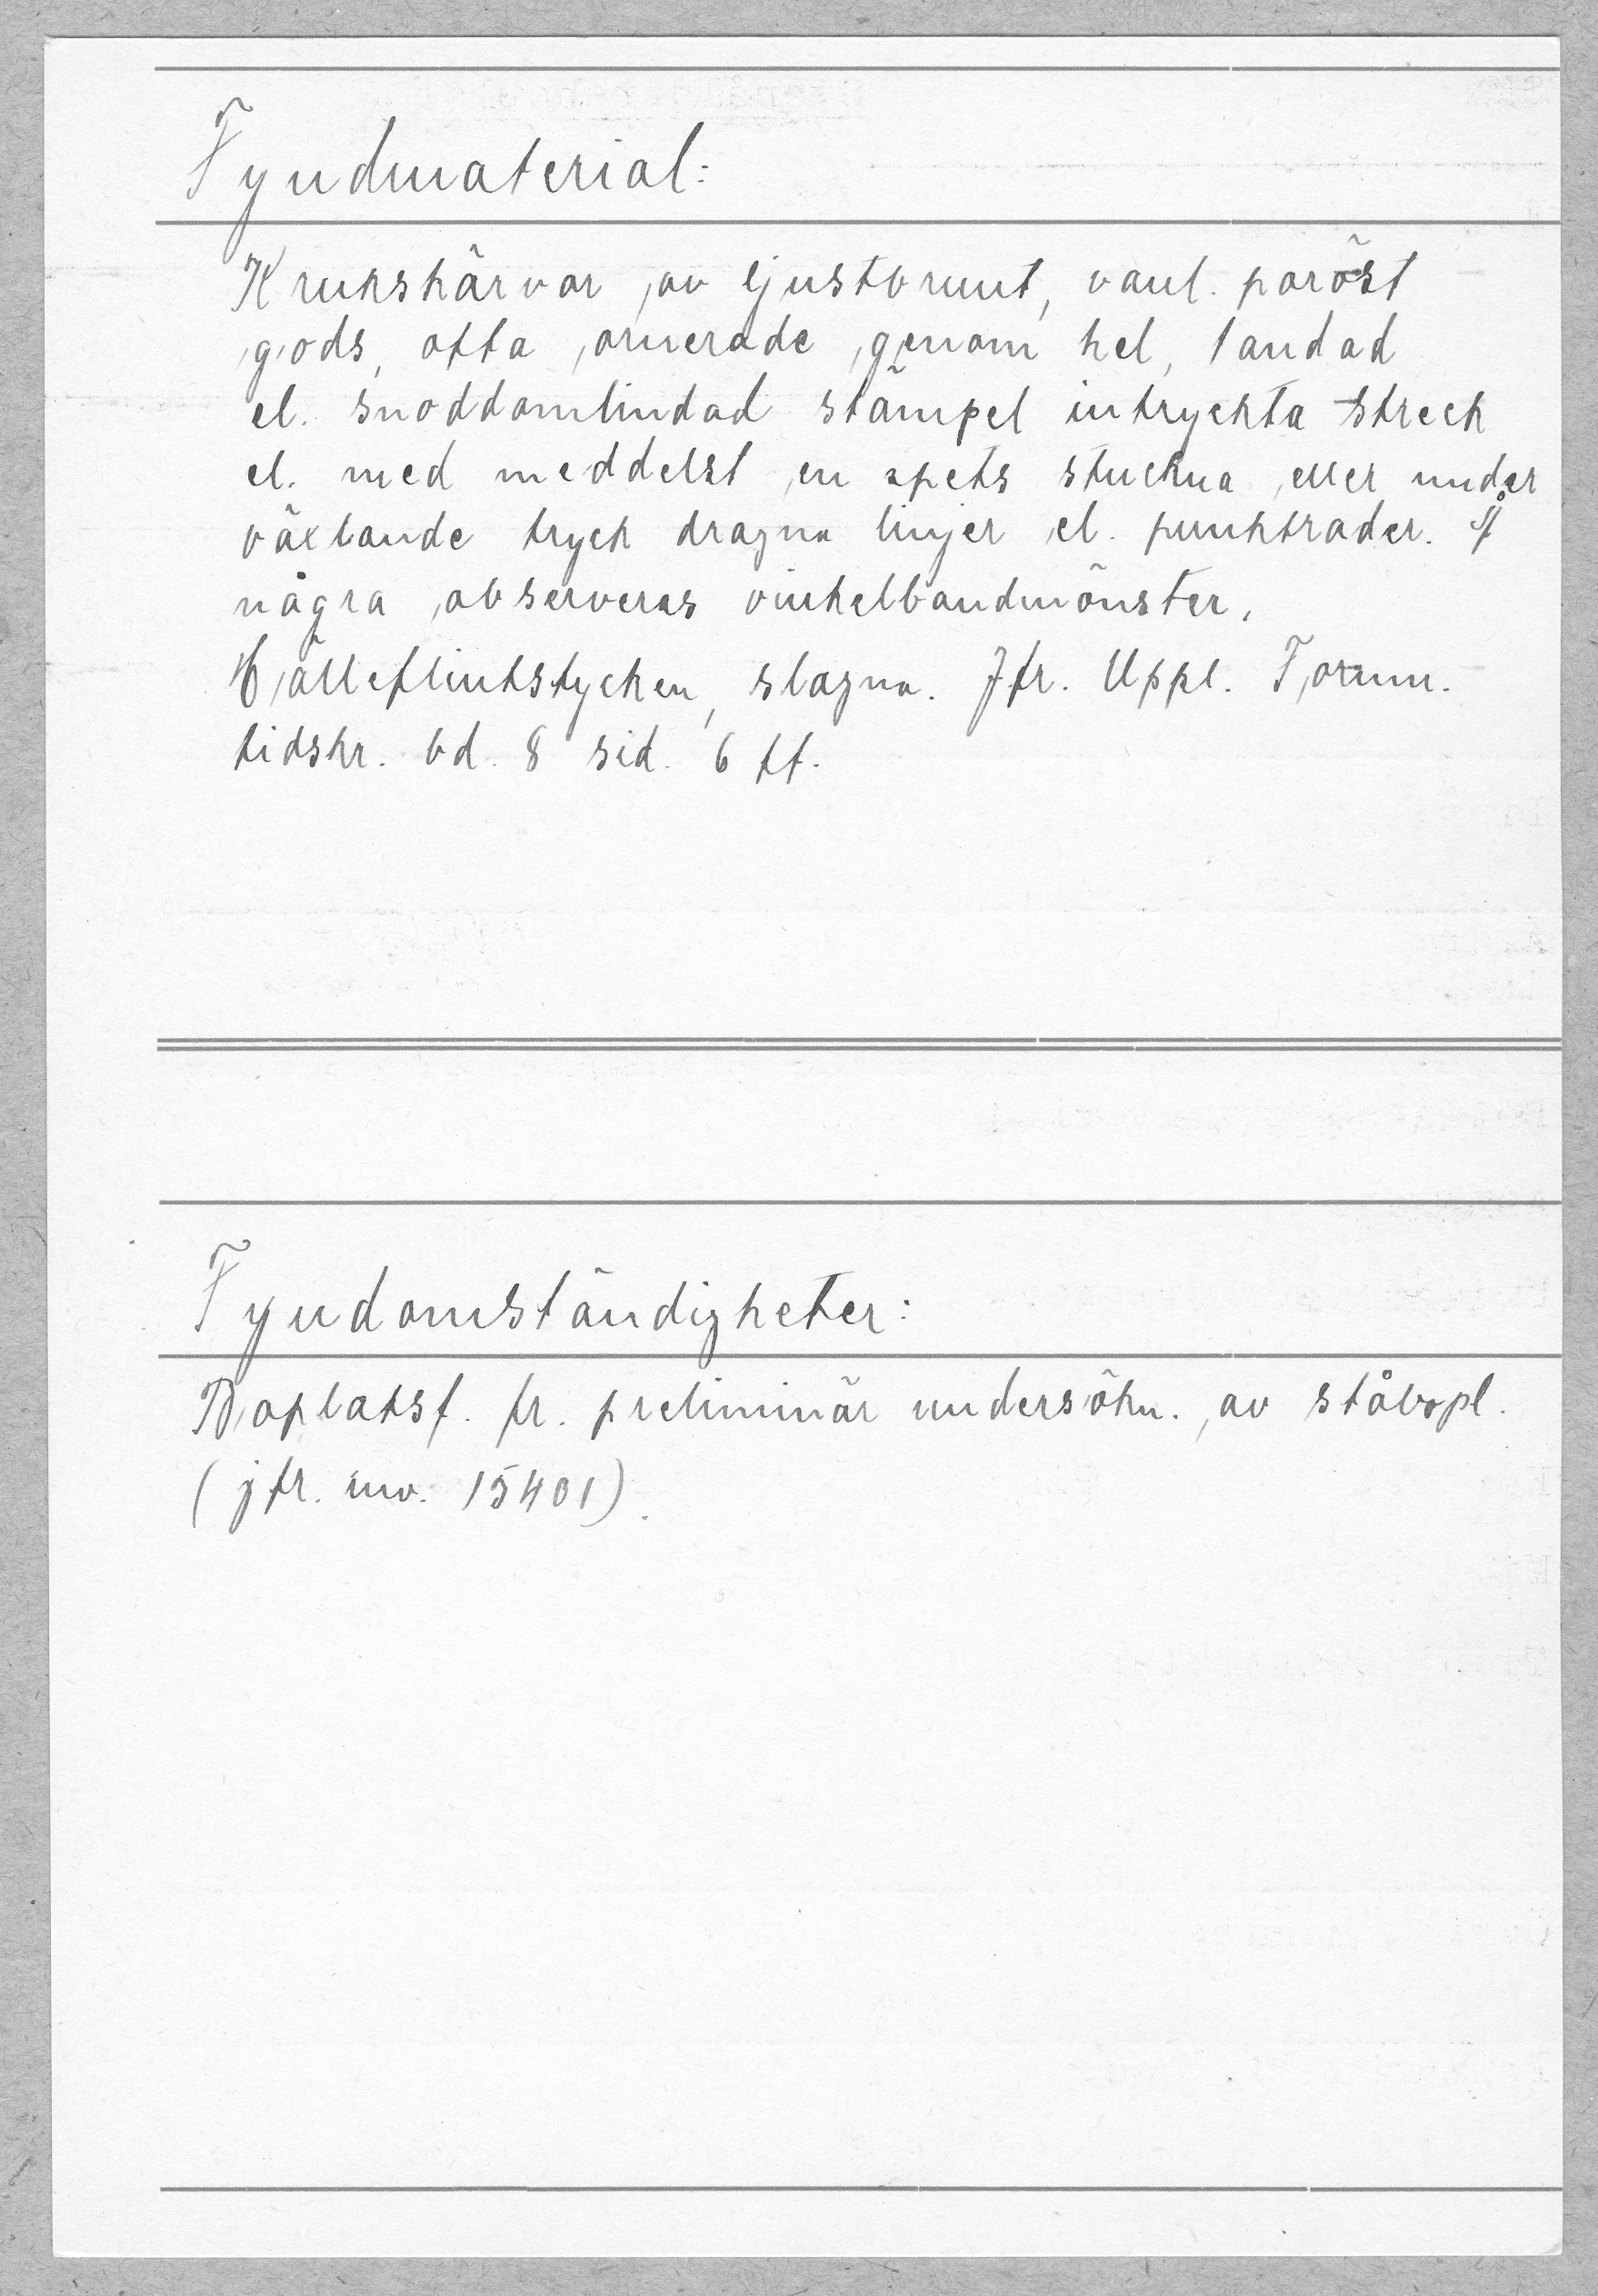 Fyndmaterial:
Krukskärvor av ljustbrunt, vanl. poröst
gods, ofta ornerade genom hel, tandad
el. snoddomlindad stämpel intryckta streck
el. med meddelst en spets stuckna eller under
växlande tryck dragna linjer el. punktrader. Å
några observeras vinkelbandmönster.
Hälleflintstycken, slagna. Jfr. Uppl. Fornm.
tidskr. bd. 8 sid. 6 ff.
Fyndomständigheter:
Boplatsf. fr. preliminär undersökn. av
(jfr. inv. 15401).